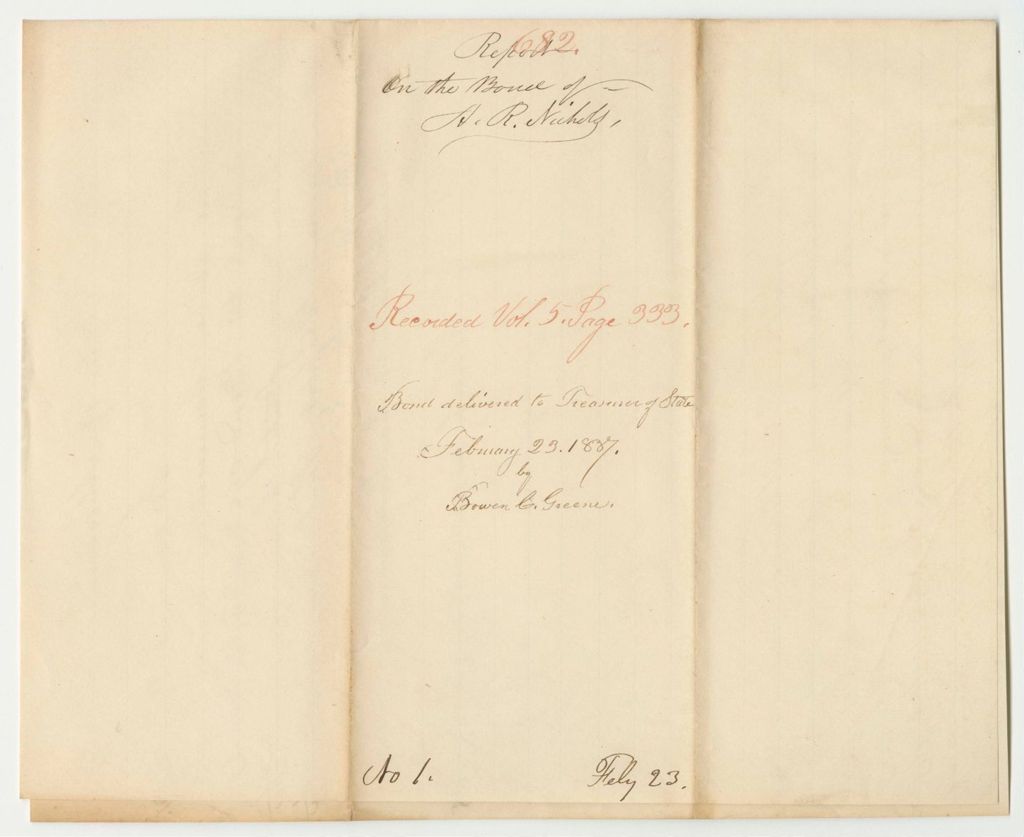 682.
Report
On the Bond of
A. R. Nichols,
Recorded Vol. 5. Page 333.
Bond delivered to Treasurer of State
February 23. 1837.
by
Bowen C. Greene.
No 1.
Feby 23.